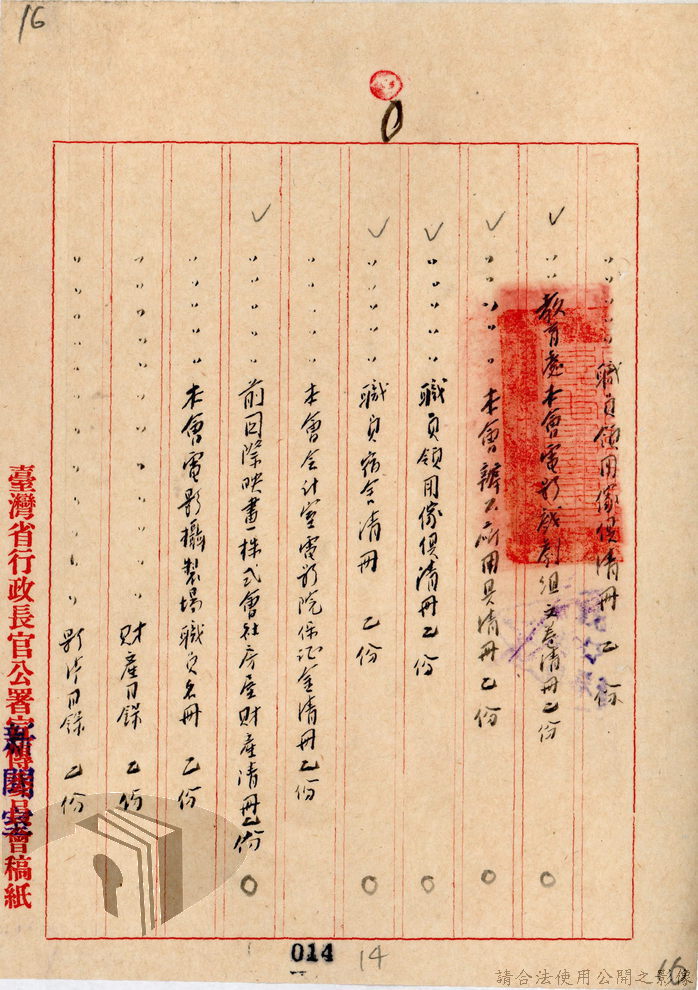 16
〃〃〃〃〃職員領用傢俱清冊 乙份
〃〃教育處本會電影戲劇組文卷清冊乙份
〃〃〃〃本會辦公廳用具清冊乙份
〃〃〃〃〃職員領用傢俱清冊乙份
〃〃〃〃〃職員宿舍清冊 乙份
〃〃〃〃〃本會會計室電影院保证金清冊乙份
〃〃〃〃〃前国際映畫株式會社房屋財產清冊乙份
〃〃〃〃〃本會電影攝製場職員名冊 乙份
〃〃〃〃〃〃〃〃〃財產目錄 乙份
〃〃〃〃〃〃〃〃〃影片目錄 乙份
臺灣省行政長官公署宣傳委員會稿紙
新聞室
014
14
16
請合法使用公開之影像